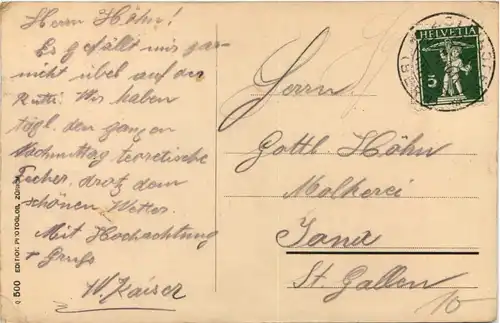 Herrn Höhn!
Es gefällt mir gar
nicht übel auf der
Rütti. Wir haben
tägl. den ganzen
Nachmittag teoretische
Fecher, drotz dem
schönen Wetter.
Mit Hochachtung
+ Gruss
W. Kaiser
HELVETIA
5
Herrn
Gottl. Höhn
Molkerei
Jona
St. Gallen
10
Q 500 EDITION PHOTOGLOB, ZÜRICH